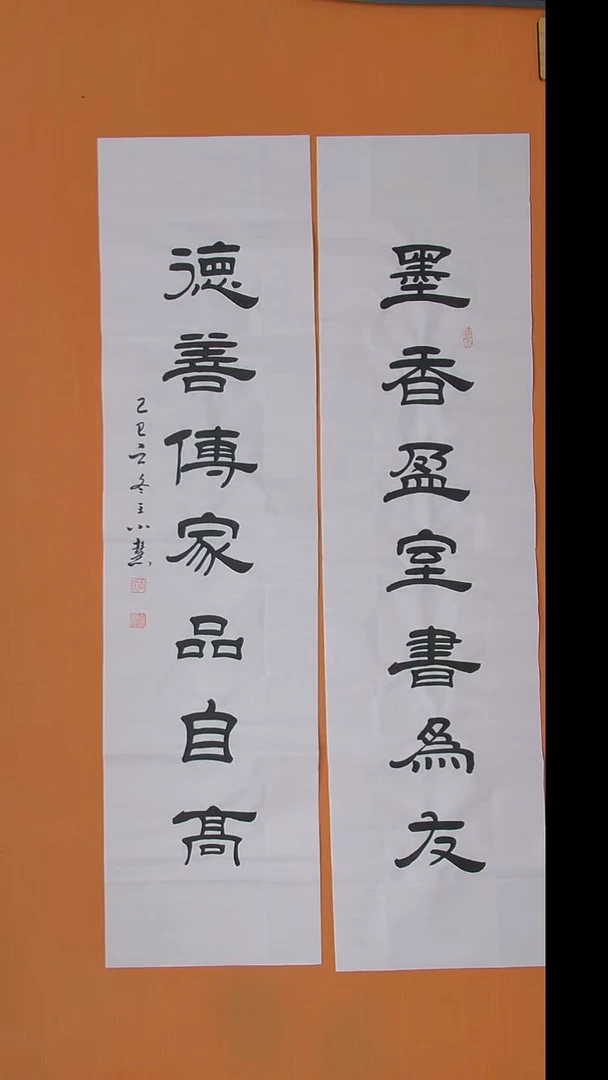 墨香盈室書為友
德善傳家品自高
乙巳立冬王小慧